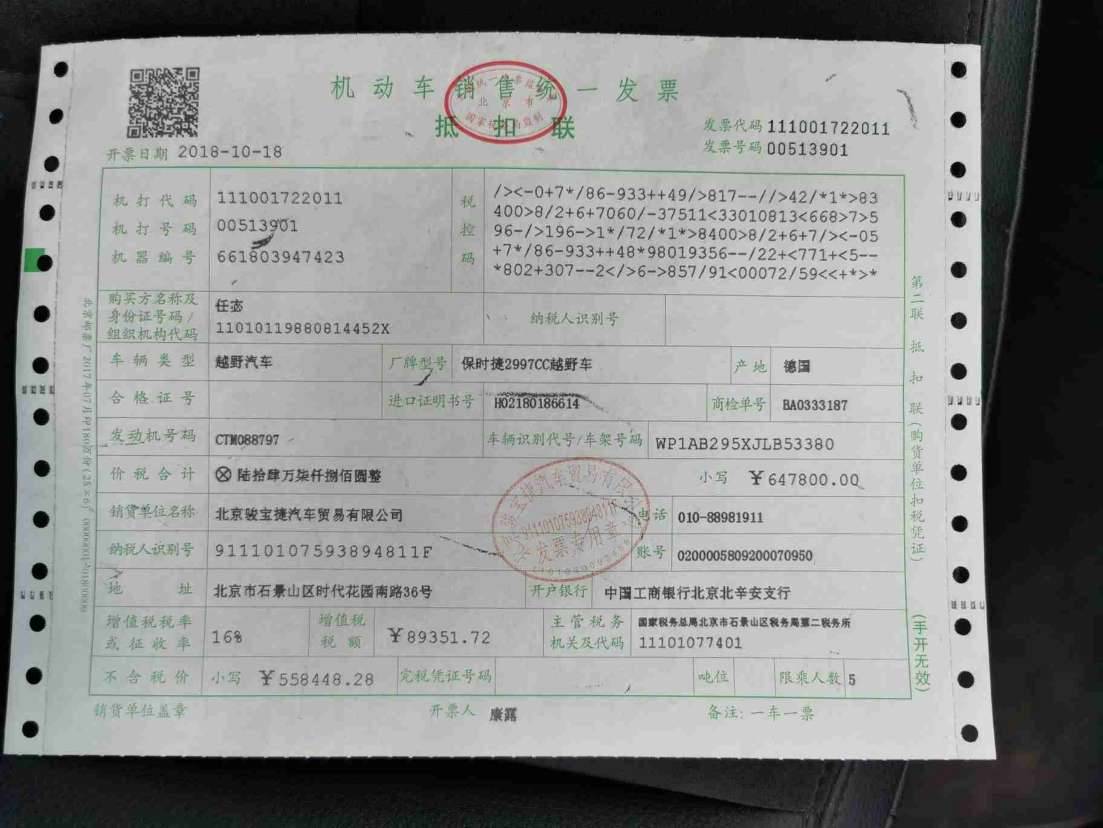 机动车销售统一发票
抵扣联
发票代码 111001722011
发票号码 00513901
开票日期 2018-10-18
机打代码 111001722011
机打号码 00513901
机器编号 661803947423
税控码
/><-0+7*/86-933++49/>817--//>42/*1*>83
400>8/2+6+7060/-37511<33010813<668>7>5
96-/>196->1*/72/*1*>8400>8/2+6+7/><-05
+7*/86-933++48*98019356--/22+<771+<5--
*802+307--2</>6->857/91<00072/59<<+*>*
购买方名称及身份证号码/组织机构代码 任忞
11010119880814452X
纳税人识别号
车辆类型 越野汽车 厂牌型号 保时捷2997CC越野车 产地 德国
合格证号 进口证明书号 H02180186614 商检单号 BA0333187
发动机号码 CTM088797 车辆识别代号/车架号码 WP1AB295XJLB53380
价税合计 ⊗陆拾肆万柒仟捌佰圆整 小写 ￥647800.00
销货单位名称 北京骏宝捷汽车贸易有限公司 电话 010-88981911
纳税人识别号 91110107593894811F 账号 0200005809200070950
地址 北京市石景山区时代花园南路36号 开户银行 中国工商银行北京北辛安支行
增值税税率或征收率 16% 增值税税额 ￥89351.72 主管税务机关及代码 国家税务总局北京市石景山区税务局第二税务所
11101077401
不含税价 小写 ￥558448.28 完税凭证号码 吨位 限乘人数 5
销货单位盖章 开票人 康露 备注: 一车一票
第二联 抵扣联(购货单位扣税凭证)
(手开无效)
北京市
发票专用章